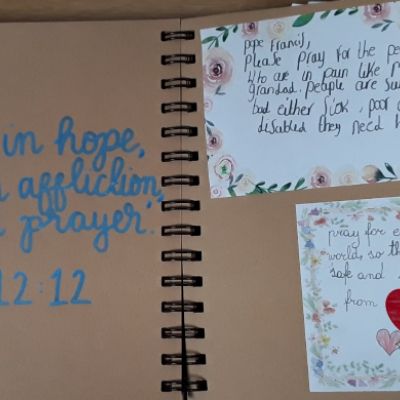 in hope,
affliction,
prayer.
12:12
pope Francis,
Please pray for the
who are in pain like
grandad. people are
bad either sick, poor
disabled they need
pray for
world, so
safe and
from